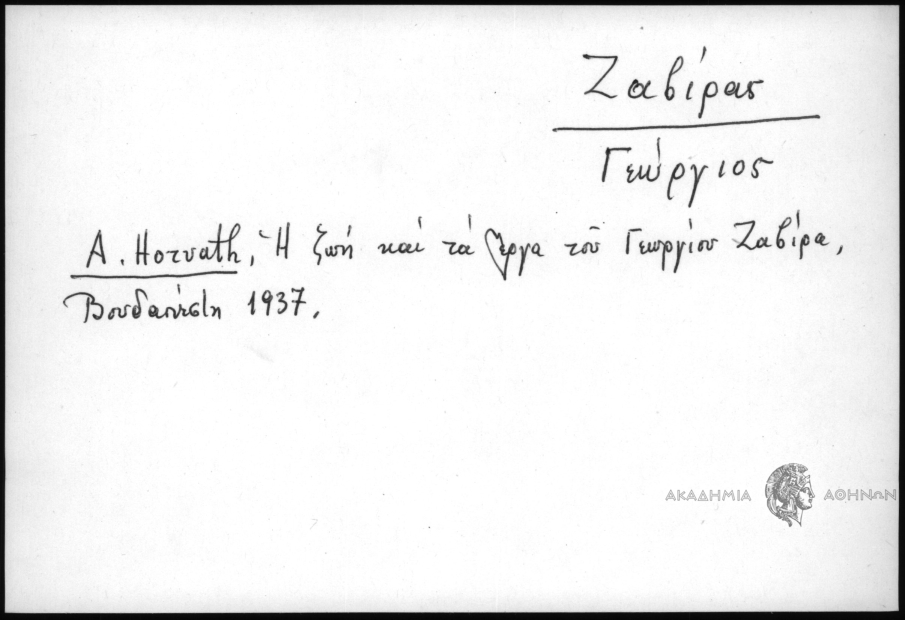 Ζαβίρας
Γεώργιος
A. Horvath, Ἡ ζωή καί τά ἔργα τοῦ Γεωργίου Ζαβίρα,
Βουδαπέστη 1937.
ΑΚΑΔΗΜΙΑ ΑΘΗΝΩΝ